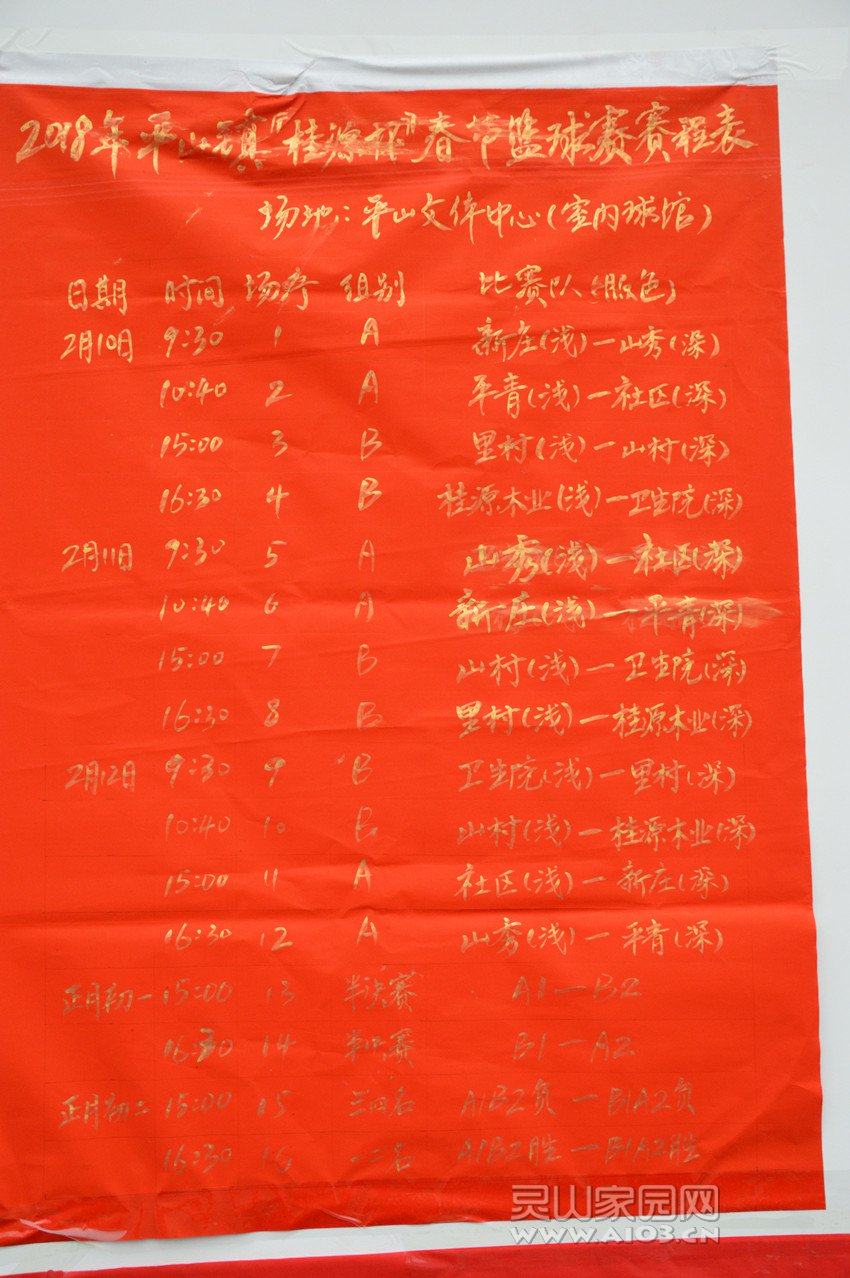 2018年平山镇“桂源杯”春节篮球赛赛程表
场地:平山文体中心(室内球馆)
日期 时间 场序 组别 比赛队(服色)
2月10日 9:30 1 A 新庄(浅)—山秀(深)
10:40 2 A 平青(浅)—社区(深)
15:00 3 B 里村(浅)—山村(深)
16:30 4 B 桂源木业(浅)—卫生院(深)
2月11日 9:30 5 A 山秀(浅)—社区(深)
10:40 6 A 新庄(浅)—平青(深)
15:00 7 B 山村(浅)—卫生院(深)
16:30 8 B 里村(浅)—桂源木业(深)
2月12日 9:30 9 B 卫生院(浅)—里村(深)
10:40 10 B 山村(浅)—桂源木业(深)
15:00 11 A 社区(浅)—新庄(深)
16:30 12 A 山秀(浅)—平青(深)
正月初一 15:00 13 半决赛 A1—B2
16:30 14 半决赛 B1—A2
正月初二 15:00 15 三四名 A1B2负—B1A2负
16:30 16 一二名 A1B2胜—B1A2胜
灵山家园网
WWW.A103.CN